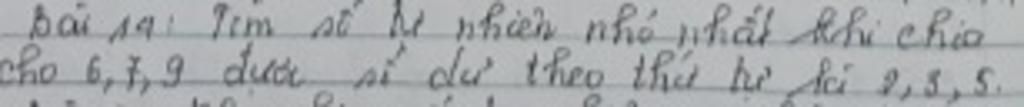 Bài 19: Tìm số tự nhiên nhỏ nhất khi chia
cho 6, 7, 9 được số dư theo thứ tự là 2, 3, 5.